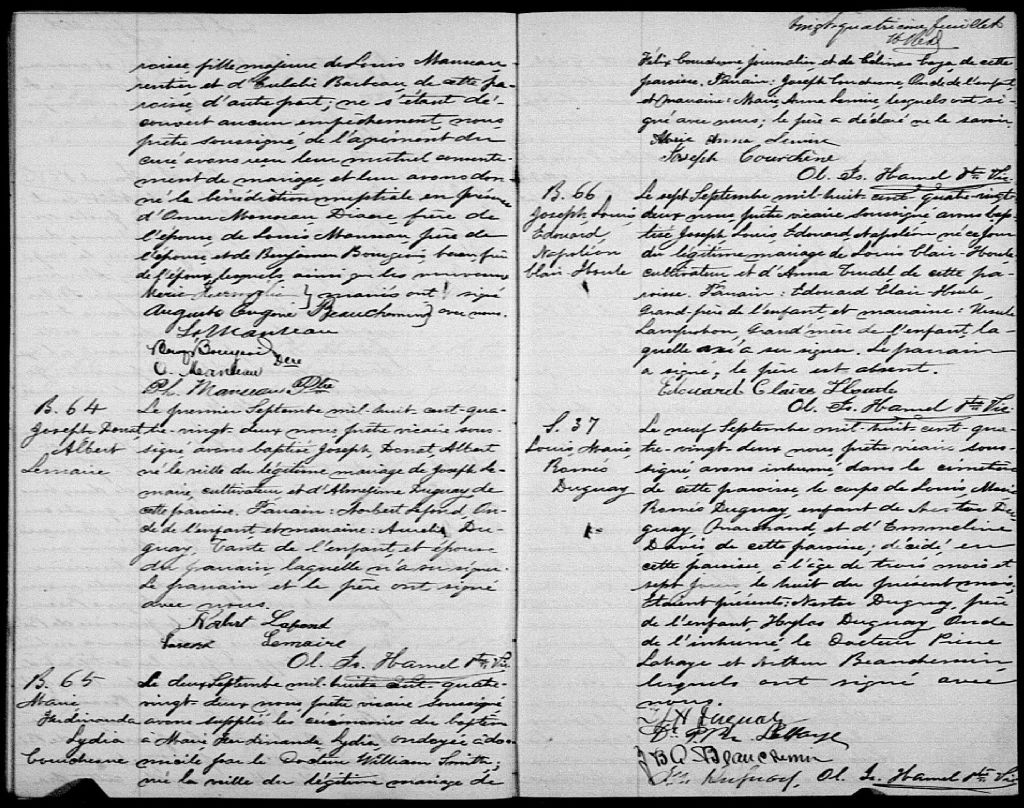 roisse, fille majeure de Louis Manseau
rentier et d'Eulalie Barbeau, de cette pa-
roisse, d'autre part; ne s'étant dé-
couvert aucun empêchement, nous
prêtre soussigné de l'agrément du
curé avons reçu leur mutuel consente-
ment de mariage, et leur avons don-
né la bénédiction nuptiale en présence
d'Omer Manseau Diacre frère de
l'épouse, de Louis Manseau, père de
l'épouse, et de Benjamin Bourgeois, beau frère
de l'époux, lesquels, ainsi que les nouveaux
mariés ont signé
Auguste Eugène Beauchemin avec nous.
Ls Manseau
Benj Bourgeois
O. Manseau Dcre
Ph. Manseau Ptre
B. 64
Joseph Donat,
Albert
Lemaire
Le premier Septembre mil-huit-cent-qua-
tre-vingt-deux nous, prêtre vicaire sous-
signé avons baptisé Joseph, Donat, Albert
né la veille du légitime mariage de Joseph Le-
maire, cultivateur et d'Alméjime Duguay de
cette paroisse. Parrain: Norbert Lafond On-
cle de l'enfant, et marraine: Aurelie Du-
guay, Tante de l'enfant, et épouse
du parrain, laquelle n'a su signer.
Le parrain et le père ont signé
avec nous.
Robert Lafond
Lemaire
Ol. Is. Hamel Ptre Vic.
B. 65
Marie
Ferdinanda
Lydia
Courchesne
Le deux Septembre mil-huit-cent-quatre-
vingt-deux nous prêtre vicaire soussigné
avons supplée les cérémonies du baptême
à Marie Ferdinanda Lydia, ondoyée à do-
micile par le Docteur William Smith;
née la veille du légitime mariage de
vingt-quatrième feuillet
Félix Courchesne journalier et de Célina Laza de cette
paroisse. Parrain: Joseph Courchesne, Oncle de l'enfant,
et marraine: Marie Anna Lemire, lesquels ont si-
gné avec nous; le père a déclaré ne le savoir
Marie Anna Lemire
Joseph Courchêne
Ol. Is. Hamel Ptre Vic.
B. 66
Joseph, Louis,
Edouard,
Napoléon
Clair Houle
Le sept Septembre mil huit cent quatre vingt
deux nous, prêtre vicaire soussigné avons bap-
tisé Joseph, Louis, Edouard, Napoléon né ce jour
du légitime mariage de Louis Clair-Houle
cultivateur et d'Anna Trudel de cette pa-
roisse. Parrain: Edouard Clair-Houle,
grand-père de l'enfant, et marraine: Ursule
Lampron, Grand'mère de l'enfant, la-
quelle n'a su signer. Le parrain
a signé; le père est absent.
Edouard Claire Houle
Ol. Is. Hamel Ptre Vic.
S. 37
Louis Marie
Roméo
Duguay
Le neuf Septembre mil-huit-cent-qua-
tre-vingt-deux nous, prêtre vicaire sous-
signé avons inhumé dans le cimetière
de cette paroisse, le corps de Louis, Marie
Roméo Duguay, enfant de Nestor Du-
guay, Marchand, et d'Emmeline
Davis de cette paroisse; décédé, en
cette paroisse, à l'âge de trois mois et
sept jours le huit du présent mois.
Etaient présents; Nestor Duguay, père
de l'enfant, Duguay, Oncle
de l'inhumé, le Docteur Pierre
Lahaye et Arthur Beauchemin
lesquels ont signé avec
nous.
Duguay
Dr. P. Lahaye
Beauchemin
Duguay, Ol. Is. Hamel Ptre Vic